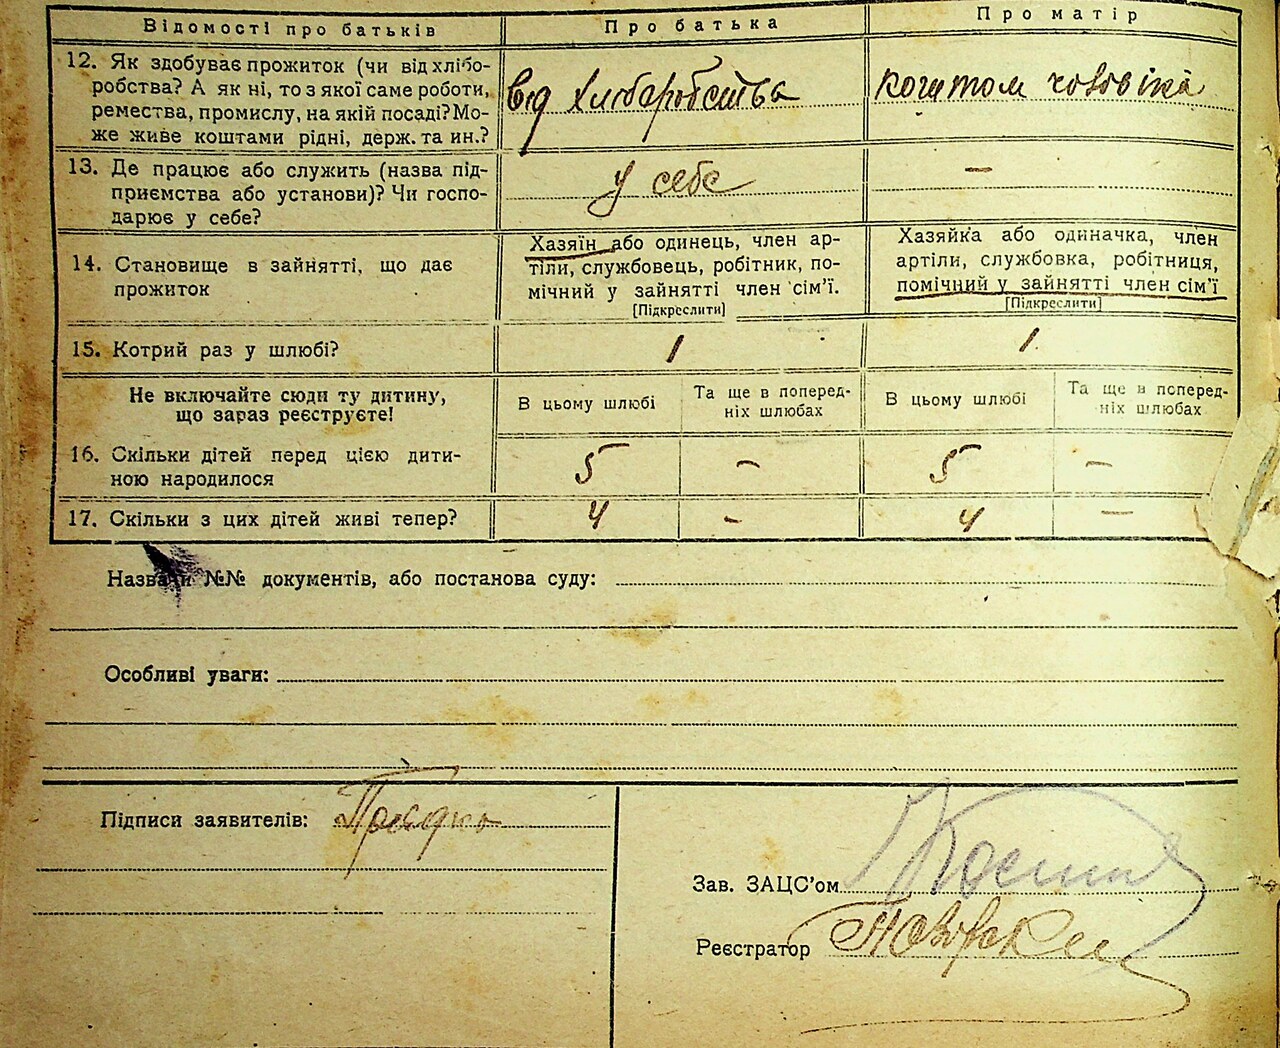 Відомості про батьків Про батька Про матір
12. Як здобуває прожиток (чи від хлібо-
робства? А як ні, то з якої саме роботи,
ремества, промислу, на якій посаді? Мо-
же живе коштами рідні, держ. та ин.?
від хліборобства
коштом чоловіка
13. Де працює або служить (назва під-
приємства або установи)? Чи госпо-
дарює у себе?
у себе
–
14. Становище в зайнятті, що дає
прожиток
Хазяїн або одинець, член ар-
тіли, службовець, робітник, по-
мічний у зайнятті член сім'ї.
[Підкреслити]
Хазяйка або одиначка, член
артіли, службовка, робітниця,
помічний у зайнятті член сім'ї
[Підкреслити]
15. Котрий раз у шлюбі? 1 1
Не включайте сюди ту дитину,
що зараз реєструєте!
В цьому шлюбі
Та ще в поперед-
ніх шлюбах
В цьому шлюбі
Та ще в поперед-
ніх шлюбах
16. Скільки дітей перед цією дити-
ною народилося
5 – 5 –
17. Скільки з цих дітей живі тепер? 4 – 4 –
Назва й №№ документів, або постанова суду:
Особливі уваги:
Підписи заявителів:
Зав. ЗАЦС'ом
Реєстратор